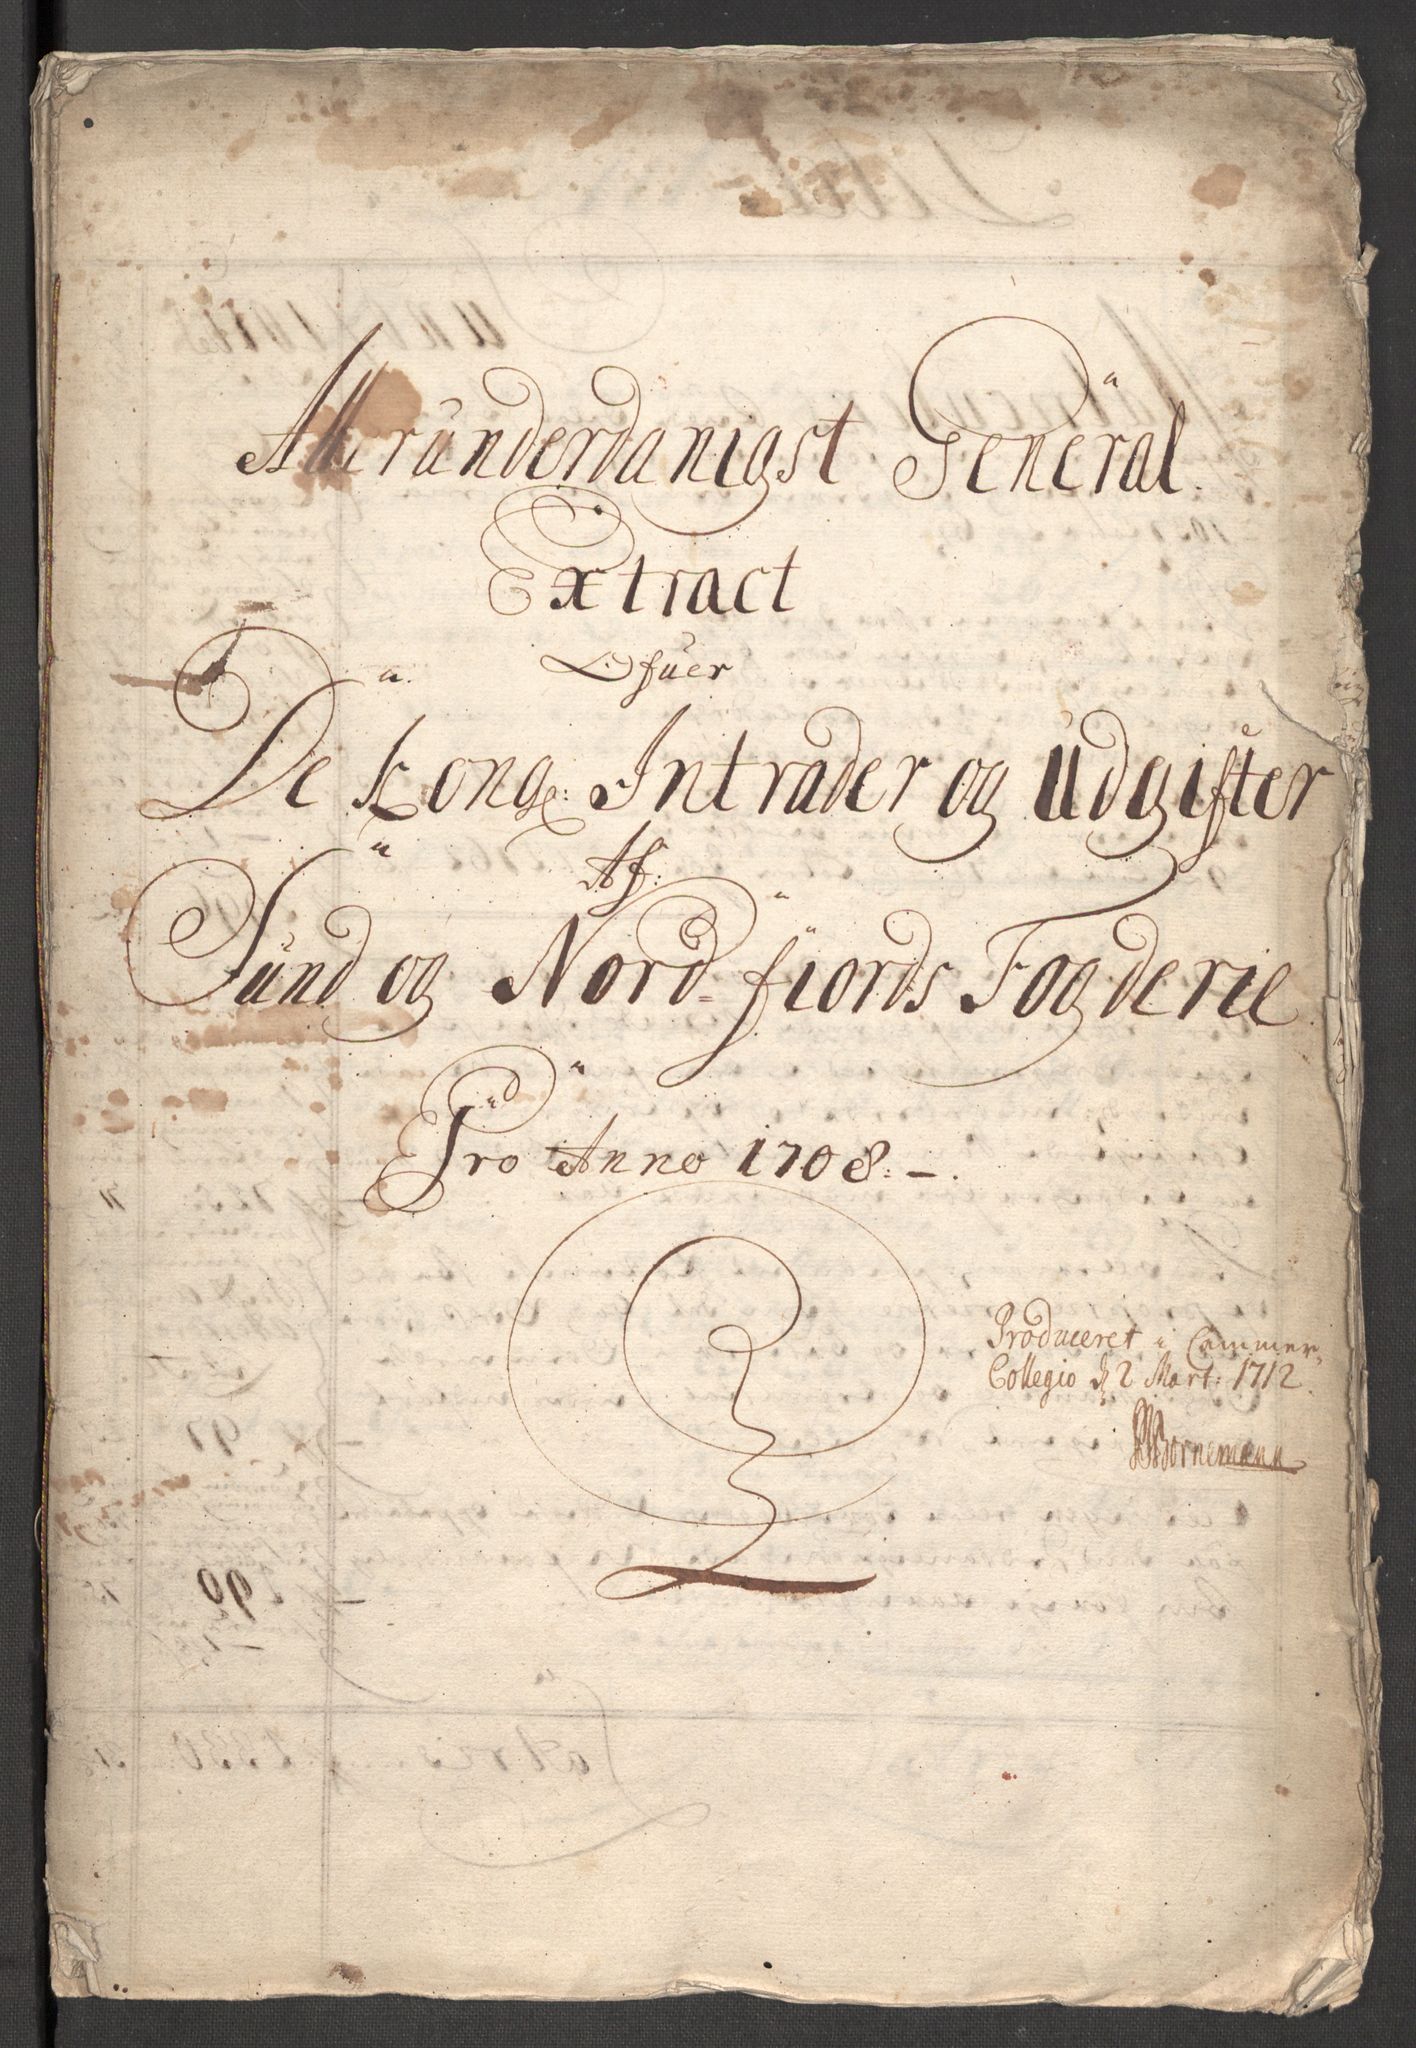 Alleründerdanigst General
Extract
Ofuer
De Kong: Intrader og Udgifter
Af:
Sünd og Nord-fiords Fogderie
Pro Anno 1708.-.
Produceret i Cammer-
Collegio d 2 Mart: 1712.
Bornemann